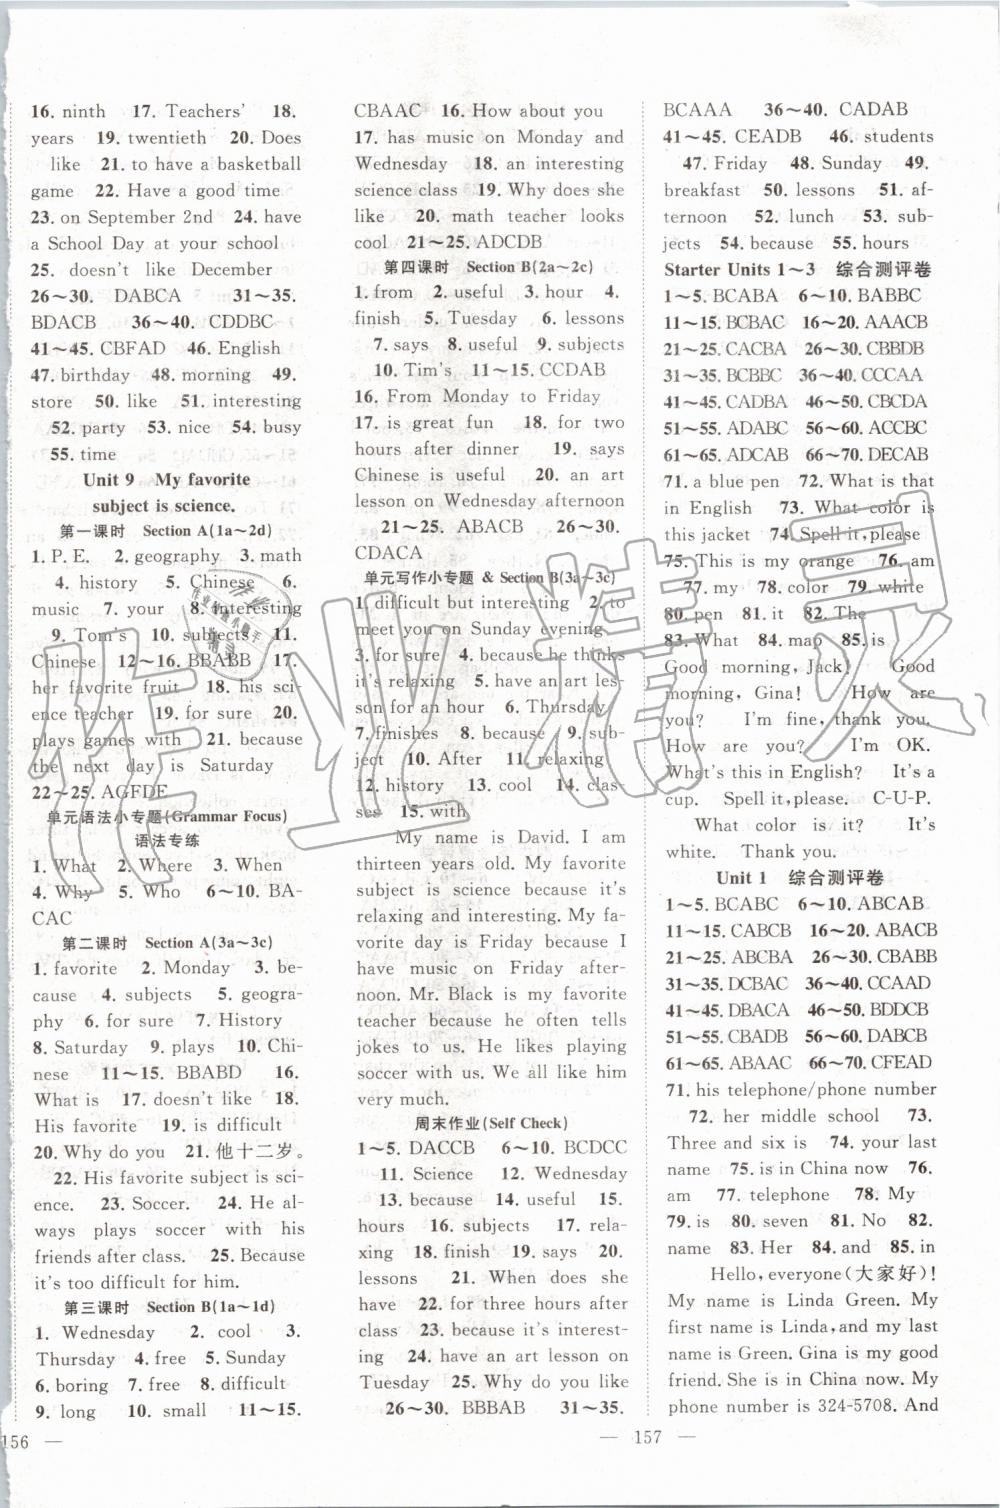 16. ninth 17. Teachers' 18.
years 19. twentieth 20. Does
like 21. to have a basketball
game 22. Have a good time
23. on September 2nd 24. have
a School Day at your school
25. doesn't like December
26～30. DABCA 31～35.
BDACB 36～40. CDDBC
41～45. CBFAD 46. English
47. birthday 48. morning 49.
store 50. like 51. interesting
52. party 53. nice 54. busy
55. time
Unit 9 My favorite
subject is science.
第一课时 Section A(1a～2d)
1. P. E. 2. geography 3. math
4. history 5. Chinese 6.
music 7. your 8. interesting
9. Tom's 10. subjects 11.
Chinese 12～16. BBABB 17.
her favorite fruit 18. his sci-
ence teacher 19. for sure 20.
plays games with 21. because
the next day is Saturday
22～25. AGFDE
单元语法小专题(Grammar Focus)
语法专练
1. What 2. Where 3. When
4. Why 5. Who 6～10. BA-
CAC
第二课时 Section A(3a～3c)
1. favorite 2. Monday 3. be-
cause 4. subjects 5. geogra-
phy 6. for sure 7. History
8. Saturday 9. plays 10. Chi-
nese 11～15. BBABD 16.
What is 17. doesn't like 18.
His favorite 19. is difficult
20. Why do you 21. 他十二岁。
22. His favorite subject is sci-
ence. 23. Soccer. 24. He al-
ways plays soccer with his
friends after class. 25. Because
it's too difficult for him.
第三课时 Section B(1a～1d)
1. Wednesday 2. cool 3.
Thursday 4. free 5. Sunday
6. boring 7. free 8. difficult
9. long 10. small 11～15.
156 —
CBAAC 16. How about you
17. has music on Monday and
Wednesday 18. an interesting
science class 19. Why does she
like 20. math teacher looks
cool 21～25. ADCDB
第四课时 Section B(2a～2c)
1. from 2. useful 3. hour 4.
finish 5. Tuesday 6. lessons
7. says 8. useful 9. subjects
10. Tim's 11～15. CCDAB
16. From Monday to Friday
17. is great fun 18. for two
hours after dinner 19. says
Chinese is useful 20. an art
lesson on Wednesday afternoon
21～25. ABACB 26～30.
CDACA
单元写作小专题 & Section B(3a～3c)
1. difficult but interesting 2. to
meet you on Sunday evening
3. for sure 4. because he thinks
it's relaxing 5. have an art les-
son for an hour 6. Thursday
7. finishes 8. because 9. sub-
ject 10. After 11. relaxing
12. history 13. cool 14. clas-
ses 15. with
My name is David. I am
thirteen years old. My favorite
subject is science because it's
relaxing and interesting. My fa-
vorite day is Friday because I
have music on Friday after-
noon. Mr. Black is my favorite
teacher because he often tells
jokes to us. He likes playing
soccer with us. We all like him
very much.
周末作业(Self Check)
1～5. DACCB 6～10. BCDCC
11. Science 12. Wednesday
13. because 14. useful 15.
hours 16. subjects 17. rela-
xing 18. finish 19. says 20.
lessons 21. When does she
have 22. for three hours after
class 23. because it's interest-
ing 24. have an art lesson on
Tuesday 25. Why do you like
26～30. BBBAB 31～35.
— 157 —
BCAAA 36～40. CADAB
41～45. CEADB 46. students
47. Friday 48. Sunday 49.
breakfast 50. lessons 51. af-
ternoon 52. lunch 53. sub-
jects 54. because 55. hours
Starter Units 1～3 综合测评卷
1～5. BCABA 6～10. BABBC
11～15. BCBAC 16～20. AAACB
21～25. CACBA 26～30. CBBDB
31～35. BCBBC 36～40. CCCAA
41～45. CADBA 46～50. CBCDA
51～55. ADABC 56～60. ACCBC
61～65. ADCAB 66～70. DCEAB
71. a blue pen 72. What is that
in English 73. What color is
this jacket 74. Spell it, please
75. This is my orange 76. am
77. my 78. color 79. white
80. pen 81. it 82. The
83. What 84. map 85. is
Good morning, Jack! Good
morning, Gina! How are
you? I'm fine, thank you.
How are you? I'm OK.
What's this in English? It's a
cup. Spell it, please. C-U-P.
What color is it? It's
white. Thank you.
Unit 1 综合测评卷
1～5. BCABC 6～10. ABCAB
11～15. CABCB 16～20. ABACB
21～25. ABCBA 26～30. CBABB
31～35. DCBAC 36～40. CCAAD
41～45. DBACA 46～50. BDDCB
51～55. CBADB 56～60. DABCB
61～65. ABAAC 66～70. CFEAD
71. his telephone/phone number
72. her middle school 73.
Three and six is 74. your last
name 75. is in China now 76.
am 77. telephone 78. My
79. is 80. seven 81. No 82.
name 83. Her 84. and 85. in
Hello, everyone(大家好)!
My name is Linda Green. My
first name is Linda, and my last
name is Green. Gina is my good
friend. She is in China now. My
phone number is 324-5708. And
作业精灵